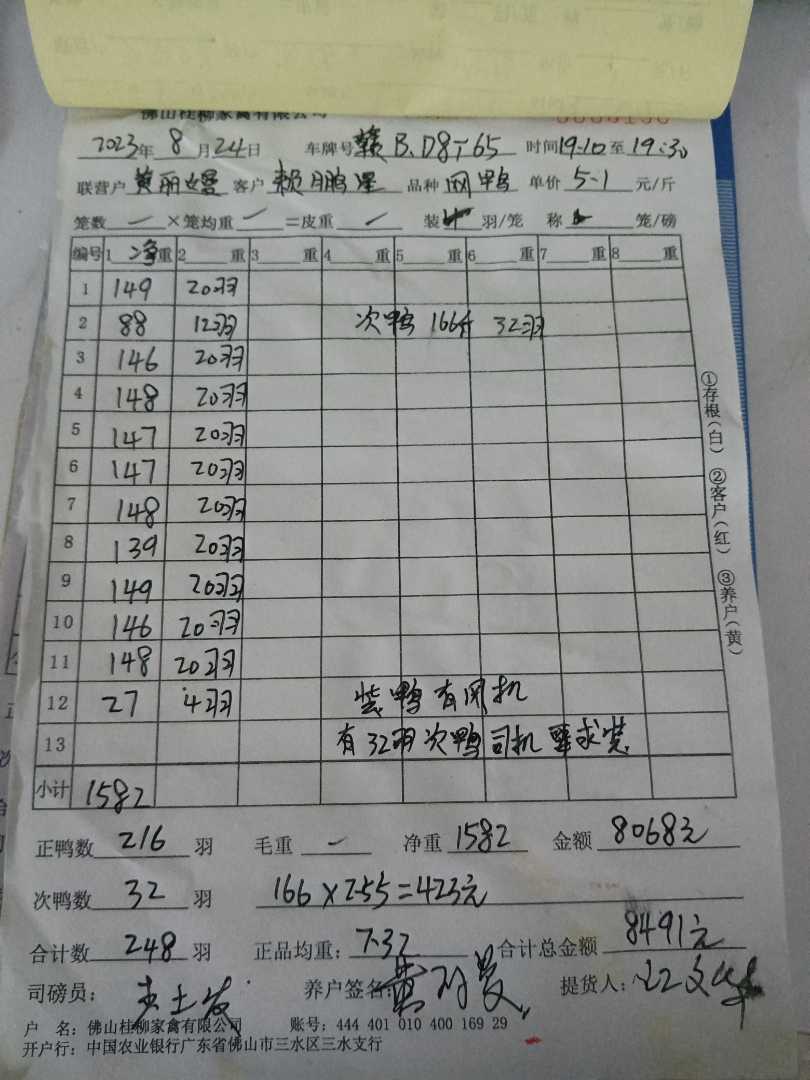 佛山桂柳家禽有限公司
2023年 8 月 24 日 车牌号 赣B.D8T65 时间 19:10 至 19:30
联营户 黄丽嫚 客户 赖鹏程 品种 网鸭 单价 5.1 元/斤
笼数 — ×笼均重 — =皮重 — 装 羽/笼 称 笼/磅
编号 1 净重 2 重 3 重 4 重 5 重 6 重 7 重 8 重
1 149 20羽
2 88 12羽 次鸭 166斤 32羽
3 146 20羽
4 148 20羽
5 147 20羽
6 147 20羽
7 148 20羽
8 139 20羽
9 149 20羽
10 146 20羽
11 148 20羽
12 27 4羽 装鸭有风机
13 有32羽次鸭司机要求装
小计 1582
正鸭数 216 羽 毛重 — 净重 1582 金额 8068元
次鸭数 32 羽 166×2.55=423元
合计数 248 羽 正品均重: 7.32 合计总金额 8491元
司磅员: 养户签名: 提货人:
户 名: 佛山桂柳家禽有限公司 账号: 444 401 010 400 169 29
开户行: 中国农业银行广东省佛山市三水区三水支行
①存根(白) ②客户(红) ③养户(黄)